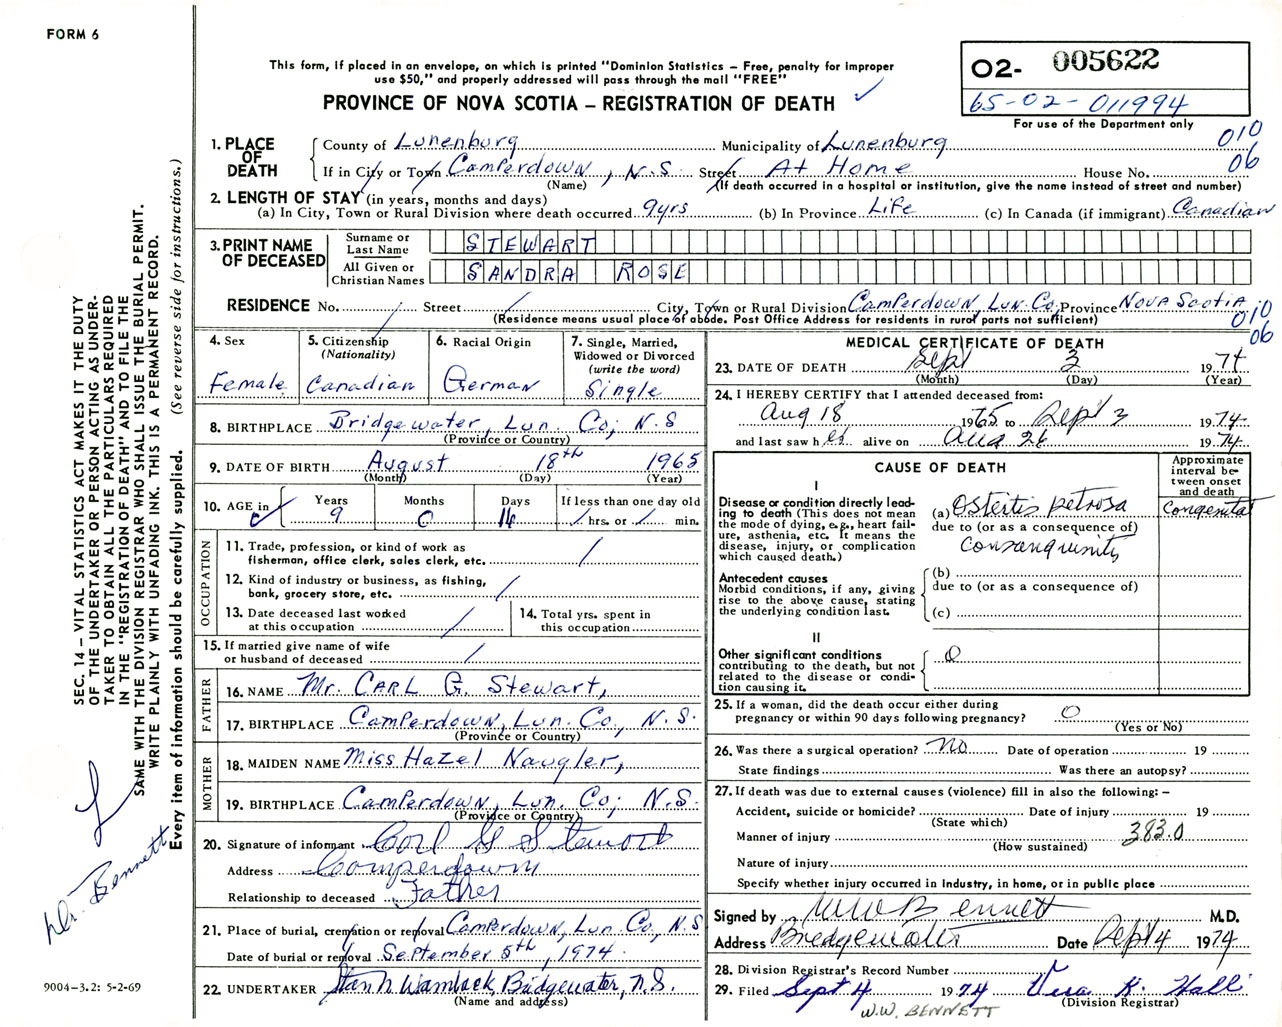 FORM 6
This form, if placed in an envelope, on which is printed "Dominion Statistics – Free, penalty for improper
use $50," and properly addressed will pass through the mail "FREE"
PROVINCE OF NOVA SCOTIA – REGISTRATION OF DEATH
02- 005622
65-02-011994
For use of the Department only
010
06
1. PLACE OF DEATH
County of Lunenburg Municipality of Lunenburg
If in City or Town Camperdown, N.S Street At Home House No.
(Name) (If death occurred in a hospital or institution, give the name instead of street and number)
2. LENGTH OF STAY (in years, months and days)
(a) In City, Town or Rural Division where death occurred 9yrs (b) In Province Life (c) In Canada (if immigrant) Canadian
3. PRINT NAME OF DECEASED
Surname or Last Name STEWART
All Given or Christian Names SANDRA ROSE
RESIDENCE No. / Street / City, Town or Rural Division Camperdown, Lun. Co; Province Nova Scotia
(Residence means usual place of abode. Post Office Address for residents in rural parts not sufficient)
010
06
4. Sex
Female
5. Citizenship
(Nationality)
Canadian
6. Racial Origin
German
7. Single, Married,
Widowed or Divorced
(write the word)
Single
8. BIRTHPLACE Bridgewater, Lun. Co; N.S
(Province or Country)
9. DATE OF BIRTH August 18th 1965
(Month) (Day) (Year)
10. AGE in
Years 9
Months 0
Days 16
If less than one day old
/ hrs. or / min.
OCCUPATION
11. Trade, profession, or kind of work as
fisherman, office clerk, sales clerk, etc. /
12. Kind of industry or business, as fishing,
bank, grocery store, etc. /
13. Date deceased last worked
at this occupation /
14. Total yrs. spent in
this occupation
15. If married give name of wife
or husband of deceased /
FATHER
16. NAME Mr. Carl G. Stewart,
17. BIRTHPLACE Camperdown, Lun. Co., N.S.
(Province or Country)
MOTHER
18. MAIDEN NAME Miss Hazel Naugler,
19. BIRTHPLACE Camperdown, Lun. Co; N.S.
(Province or Country)
20. Signature of informant Carl G Stewart
Address Camperdown
Relationship to deceased Father
21. Place of burial, cremation or removal Camperdown, Lun. Co., N.S
Date of burial or removal September 5th, 1974.
22. UNDERTAKER Bridgewater, N.S.
(Name and address)
MEDICAL CERTIFICATE OF DEATH
23. DATE OF DEATH Sept 3 1974
(Month) (Day) (Year)
24. I HEREBY CERTIFY that I attended deceased from:
Aug 18 1965 to Sept 3 1974
and last saw her alive on Aug 26 1974
CAUSE OF DEATH
Approximate
interval be-
tween onset
and death
I
Disease or condition directly lead-
ing to death (This does not mean
the mode of dying, e.g., heart fail-
ure, asthenia, etc. It means the
disease, injury, or complication
which caused death.)
(a) Ostertis petrosa Congenital
due to (or as a consequence of)
Consanquinity
Antecedent causes
Morbid conditions, if any, giving
rise to the above cause, stating
the underlying condition last.
(b)
due to (or as a consequence of)
(c)
II
Other significant conditions
contributing to the death, but not
related to the disease or condi-
tion causing it.
0
25. If a woman, did the death occur either during
pregnancy or within 90 days following pregnancy? 0
(Yes or No)
26. Was there a surgical operation? No Date of operation 19
State findings Was there an autopsy?
27. If death was due to external causes (violence) fill in also the following: –
Accident, suicide or homicide? Date of injury 19
(State which)
Manner of injury 383.0
(How sustained)
Nature of injury
Specify whether injury occurred in industry, in home, or in public place
Signed by W W Bennett M.D.
Address Bridgewater Date Sept 4 1974
28. Division Registrar's Record Number
29. Filed Sept 4 1974 Vera K. Hall
(Division Registrar)
W.W. BENNETT
SEC. 14 – VITAL STATISTICS ACT MAKES IT THE DUTY
OF THE UNDERTAKER OR PERSON ACTING AS UNDER-
TAKER TO OBTAIN ALL THE PARTICULARS REQUIRED
IN THE "REGISTRATION OF DEATH" AND TO FILE THE
SAME WITH THE DIVISION REGISTRAR WHO SHALL ISSUE THE BURIAL PERMIT.
WRITE PLAINLY WITH UNFADING INK. THIS IS A PERMANENT RECORD.
Every item of information should be carefully supplied. (See reverse side for instructions.)
Dr. Bennett
9004-3.2: 5-2-69